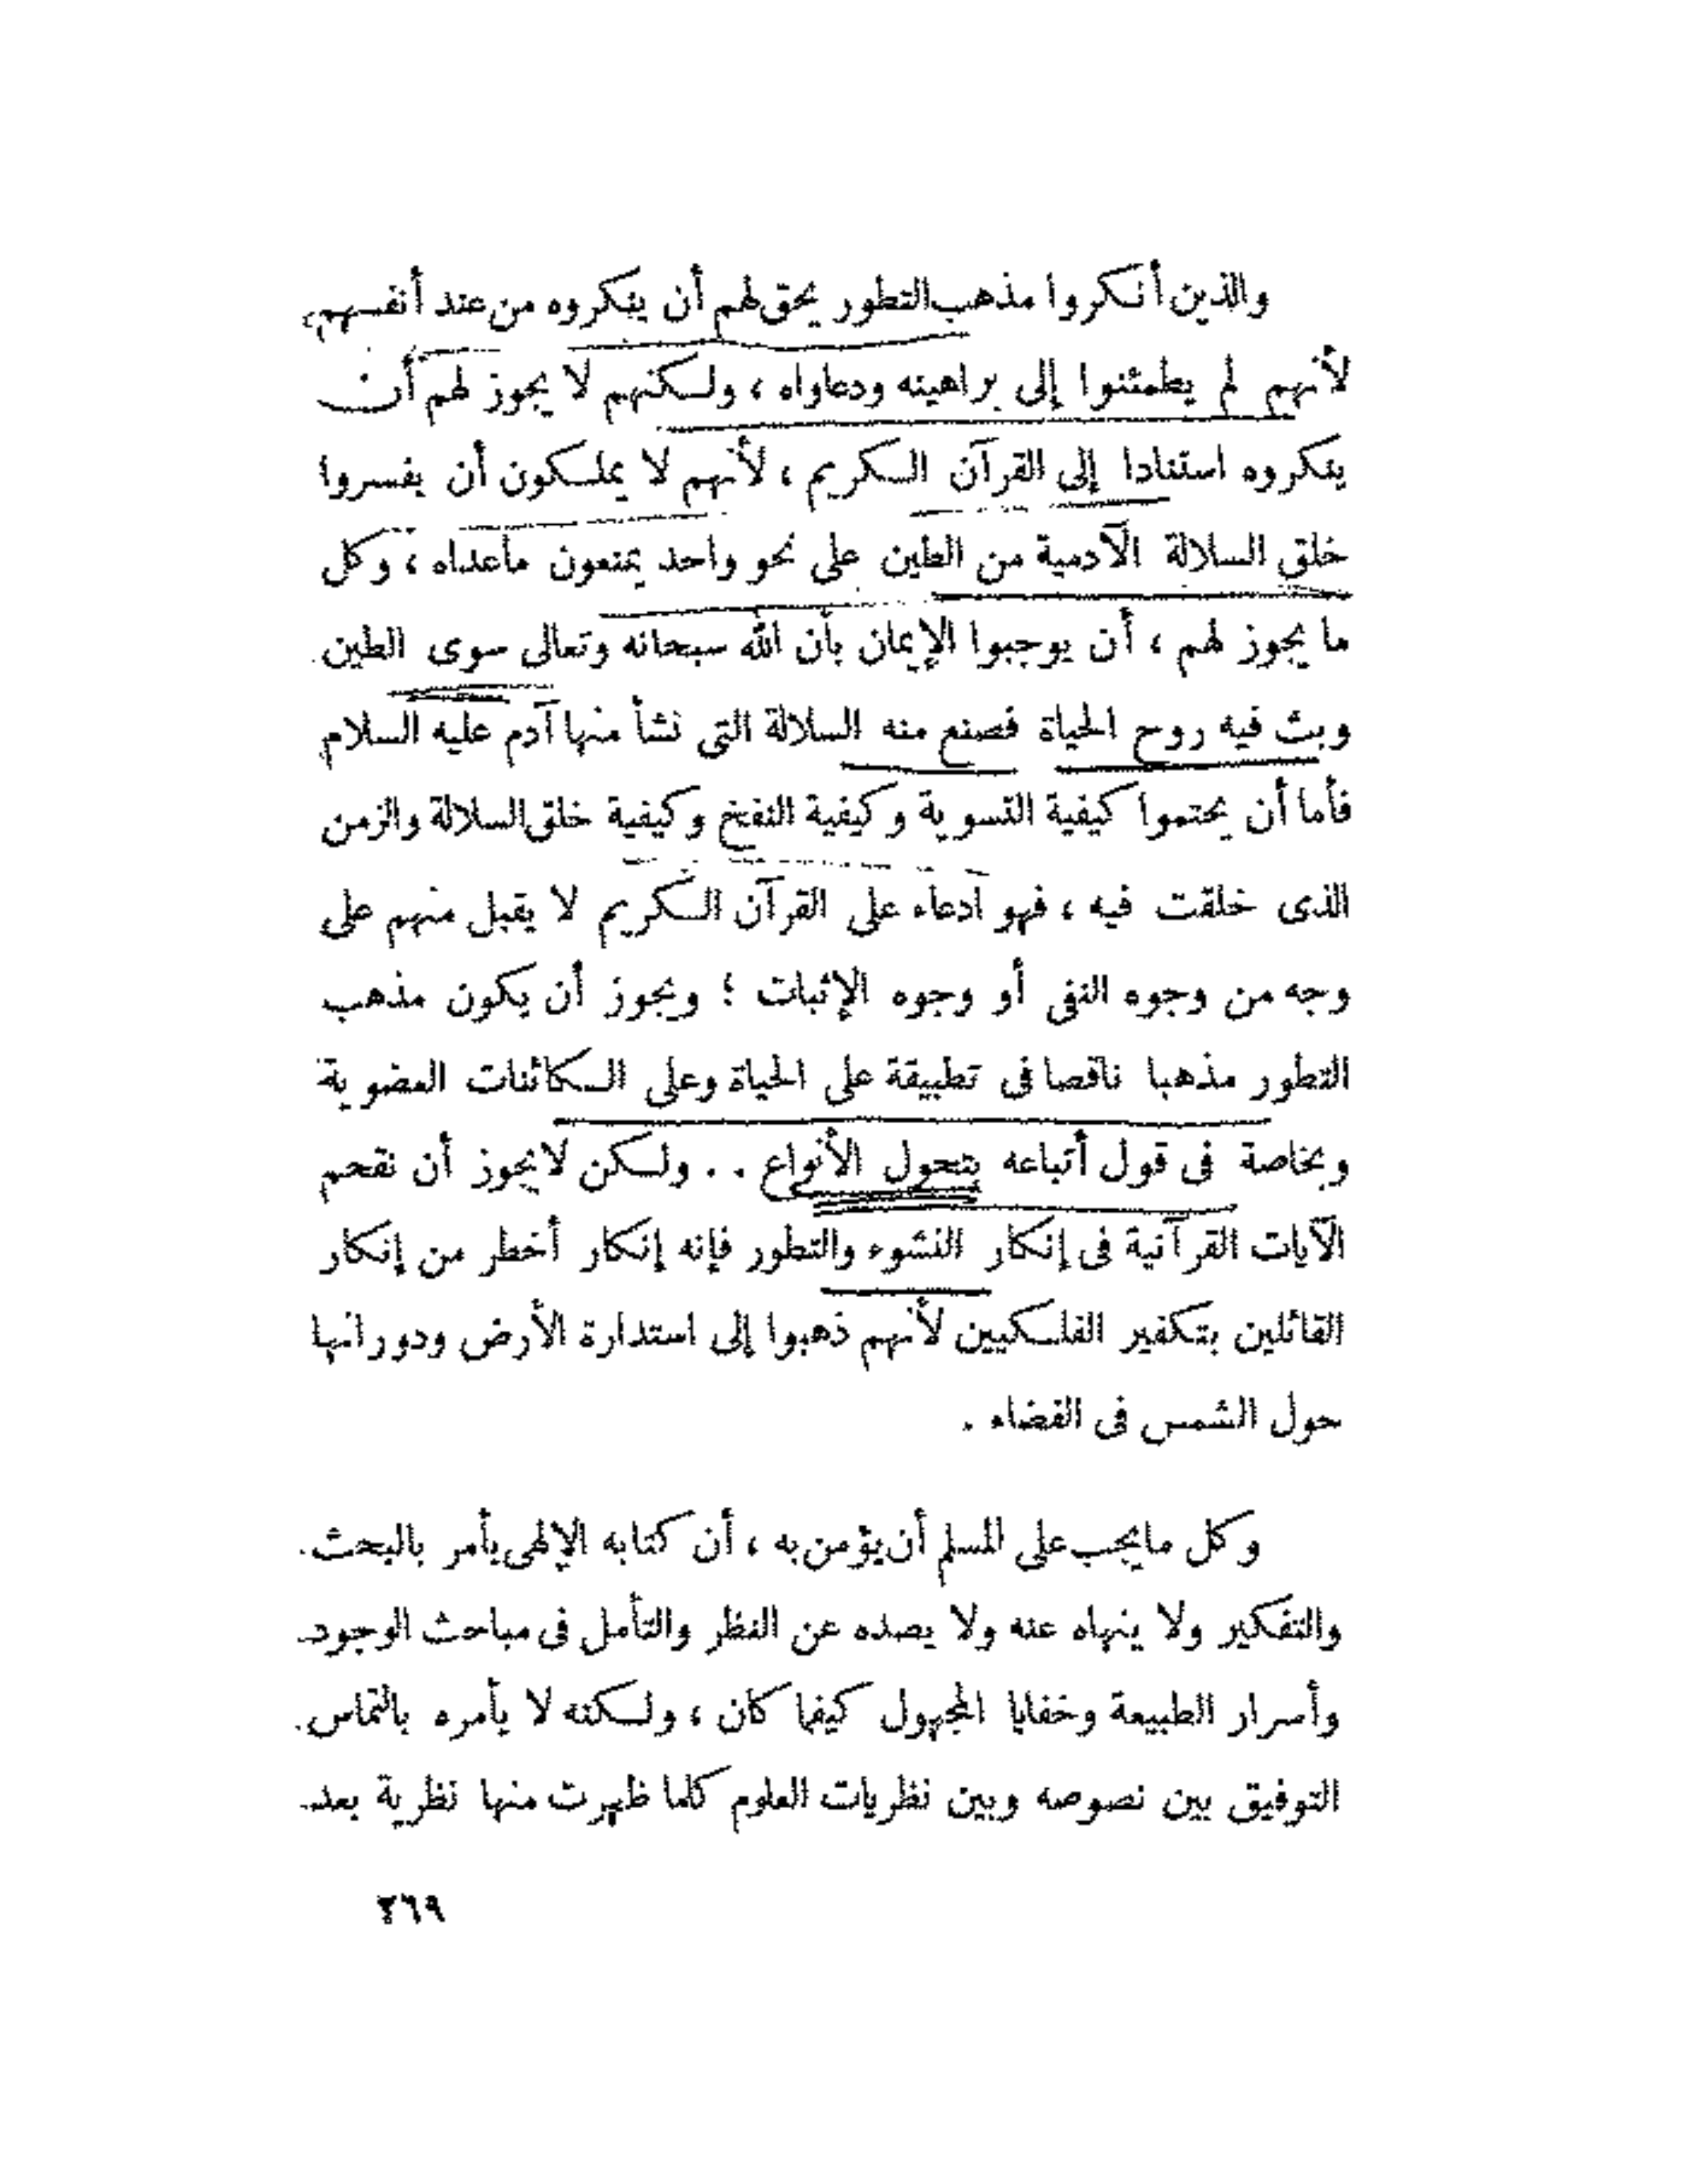 والذين أنكروا مذهب التطور يحق لهم أن ينكروه من عند أنفسهم،
لأنهم لم يطمئنوا إلى براهينه ودعاواه ، ولكنهم لا يجوز لهم أن
ينكروه استنادا إلى القرآن الكريم ، لأنهم لا يملكون أن يفسروا
خلق السلالة الآدمية من الطين على نحو واحد يمنعون ماعداه ، وكل
ما يجوز لهم ، أن يوجبوا الإيمان بأن الله سبحانه وتعالى سوى الطين
وبث فيه روح الحياة فصنع منه السلالة التى نشأ منها آدم عليه السلام
فأما أن يحتموا كيفية التسوية وكيفية النفخ وكيفية خلق السلالة والزمن
الذى خلقت فيه ، فهو ادعاء على القرآن الكريم لا يقبل منهم على
وجه من وجوه النفى أو وجوه الإثبات ؛ ويجوز أن يكون مذهب
التطور مذهبا ناقصا فى تطبيقة على الحياة وعلى الكائنات العضوية
وبخاصة فى قول أتباعه بتحول الأنواع . . ولكن لايجوز أن نقحم
الآيات القرآنية فى إنكار النشوء والتطور فإنه إنكار أخطر من إنكار
القائلين بتكفير الفلكيين لأنهم ذهبوا إلى استدارة الأرض ودورانها
حول الشمس فى الفضاء .
وكل مايجب على المسلم أن يؤمن به ، أن كتابه الإلهى يأمر بالبحث
والتفكير ولا ينهاه عنه ولا يصده عن النظر والتأمل فى مباحث الوجود
وأسرار الطبيعة وخفايا المجهول كيفما كان ، ولكنه لا يأمره بالتماس
التوفيق بين نصوصه وبين نظريات العلوم كلما ظهرت منها نظرية بعد
٢٦٩